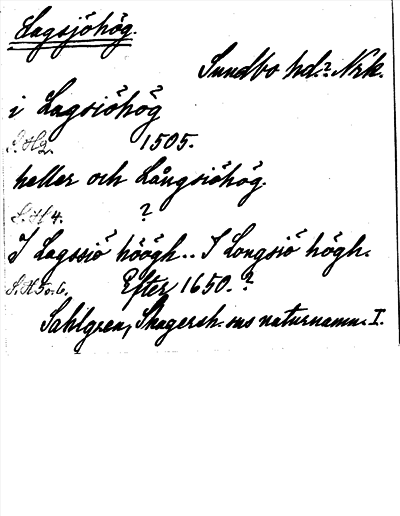 Lagsjöhög.
Sundbo hd.? Nrk.
i Lagsiöhög
S. H 2. 1505.
heller och Långsiöhög.
S. H 4. ?
I Lagssiö höögh.. I Longsiö högh.
S. H 5 o. 6. Efter 1650. ?
Sahlgren, Skagersh. ms naturnamn. I.